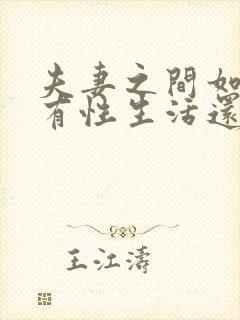 夫妻之間如
有性生活還
王江濤